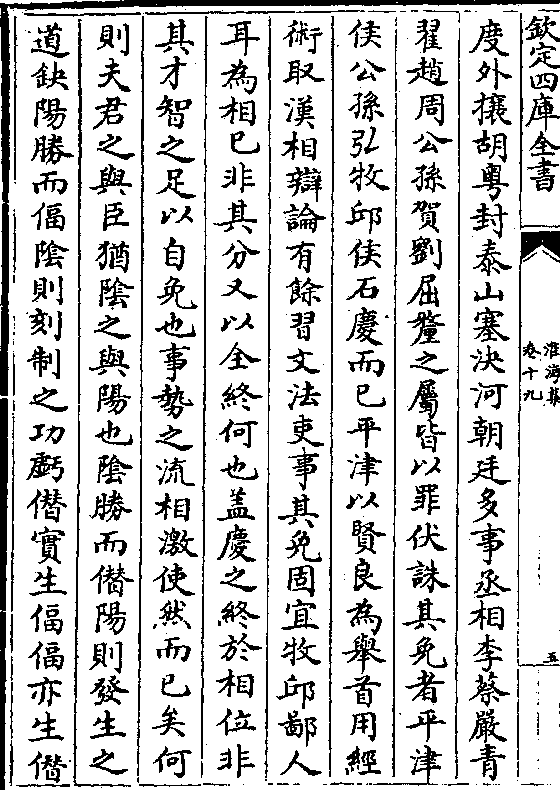 欽定四庫全書
淮海集
卷十九
五
度外攘胡粵封泰山塞決河朝廷多事丞相李蔡嚴青
翟趙周公孫賀劉屈氂之屬皆以罪伏誅其免者平津
侯公孫弘牧邱侯石慶而已平津以賢良為舉首用經
術取漢相辯論有餘習文法吏事其免固宜牧邱鄙人
耳為相已非其分又以全終何也蓋慶之終於相位非
其才智之足以自免也事勢之流相激使然而已矣何
則夫君之與臣猶陰之與陽也陰勝而僭陽則發生之
道缺陽勝而偪陰則刻制之功虧僭實生偪偪亦生僭